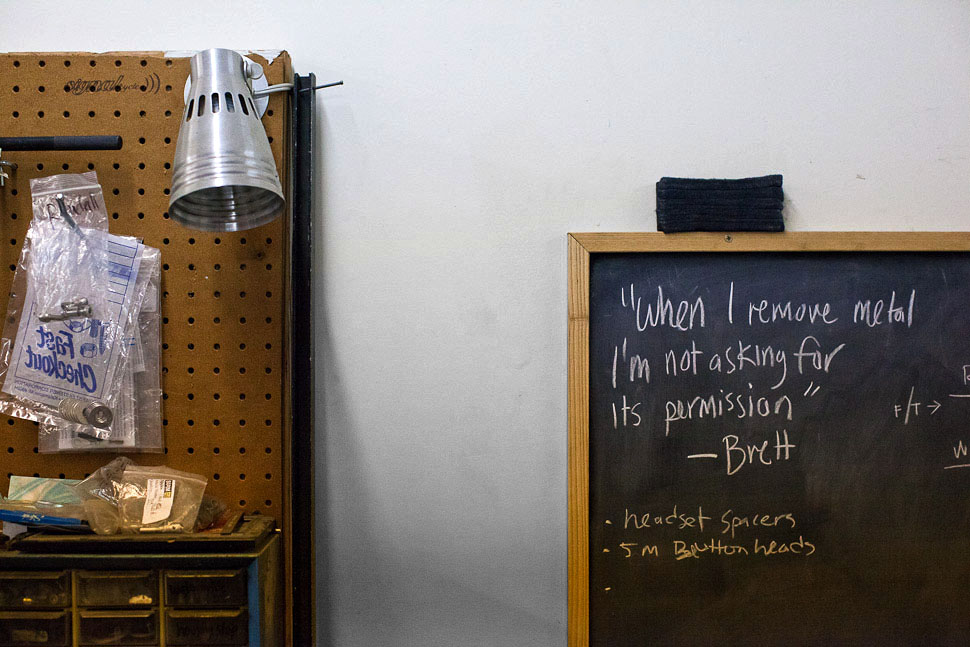 "When I remove metal
I'm not asking for
its permission"
— Brett
F/T →
W
· headset spacers
· 5m Button heads
·
Fast
Checkout